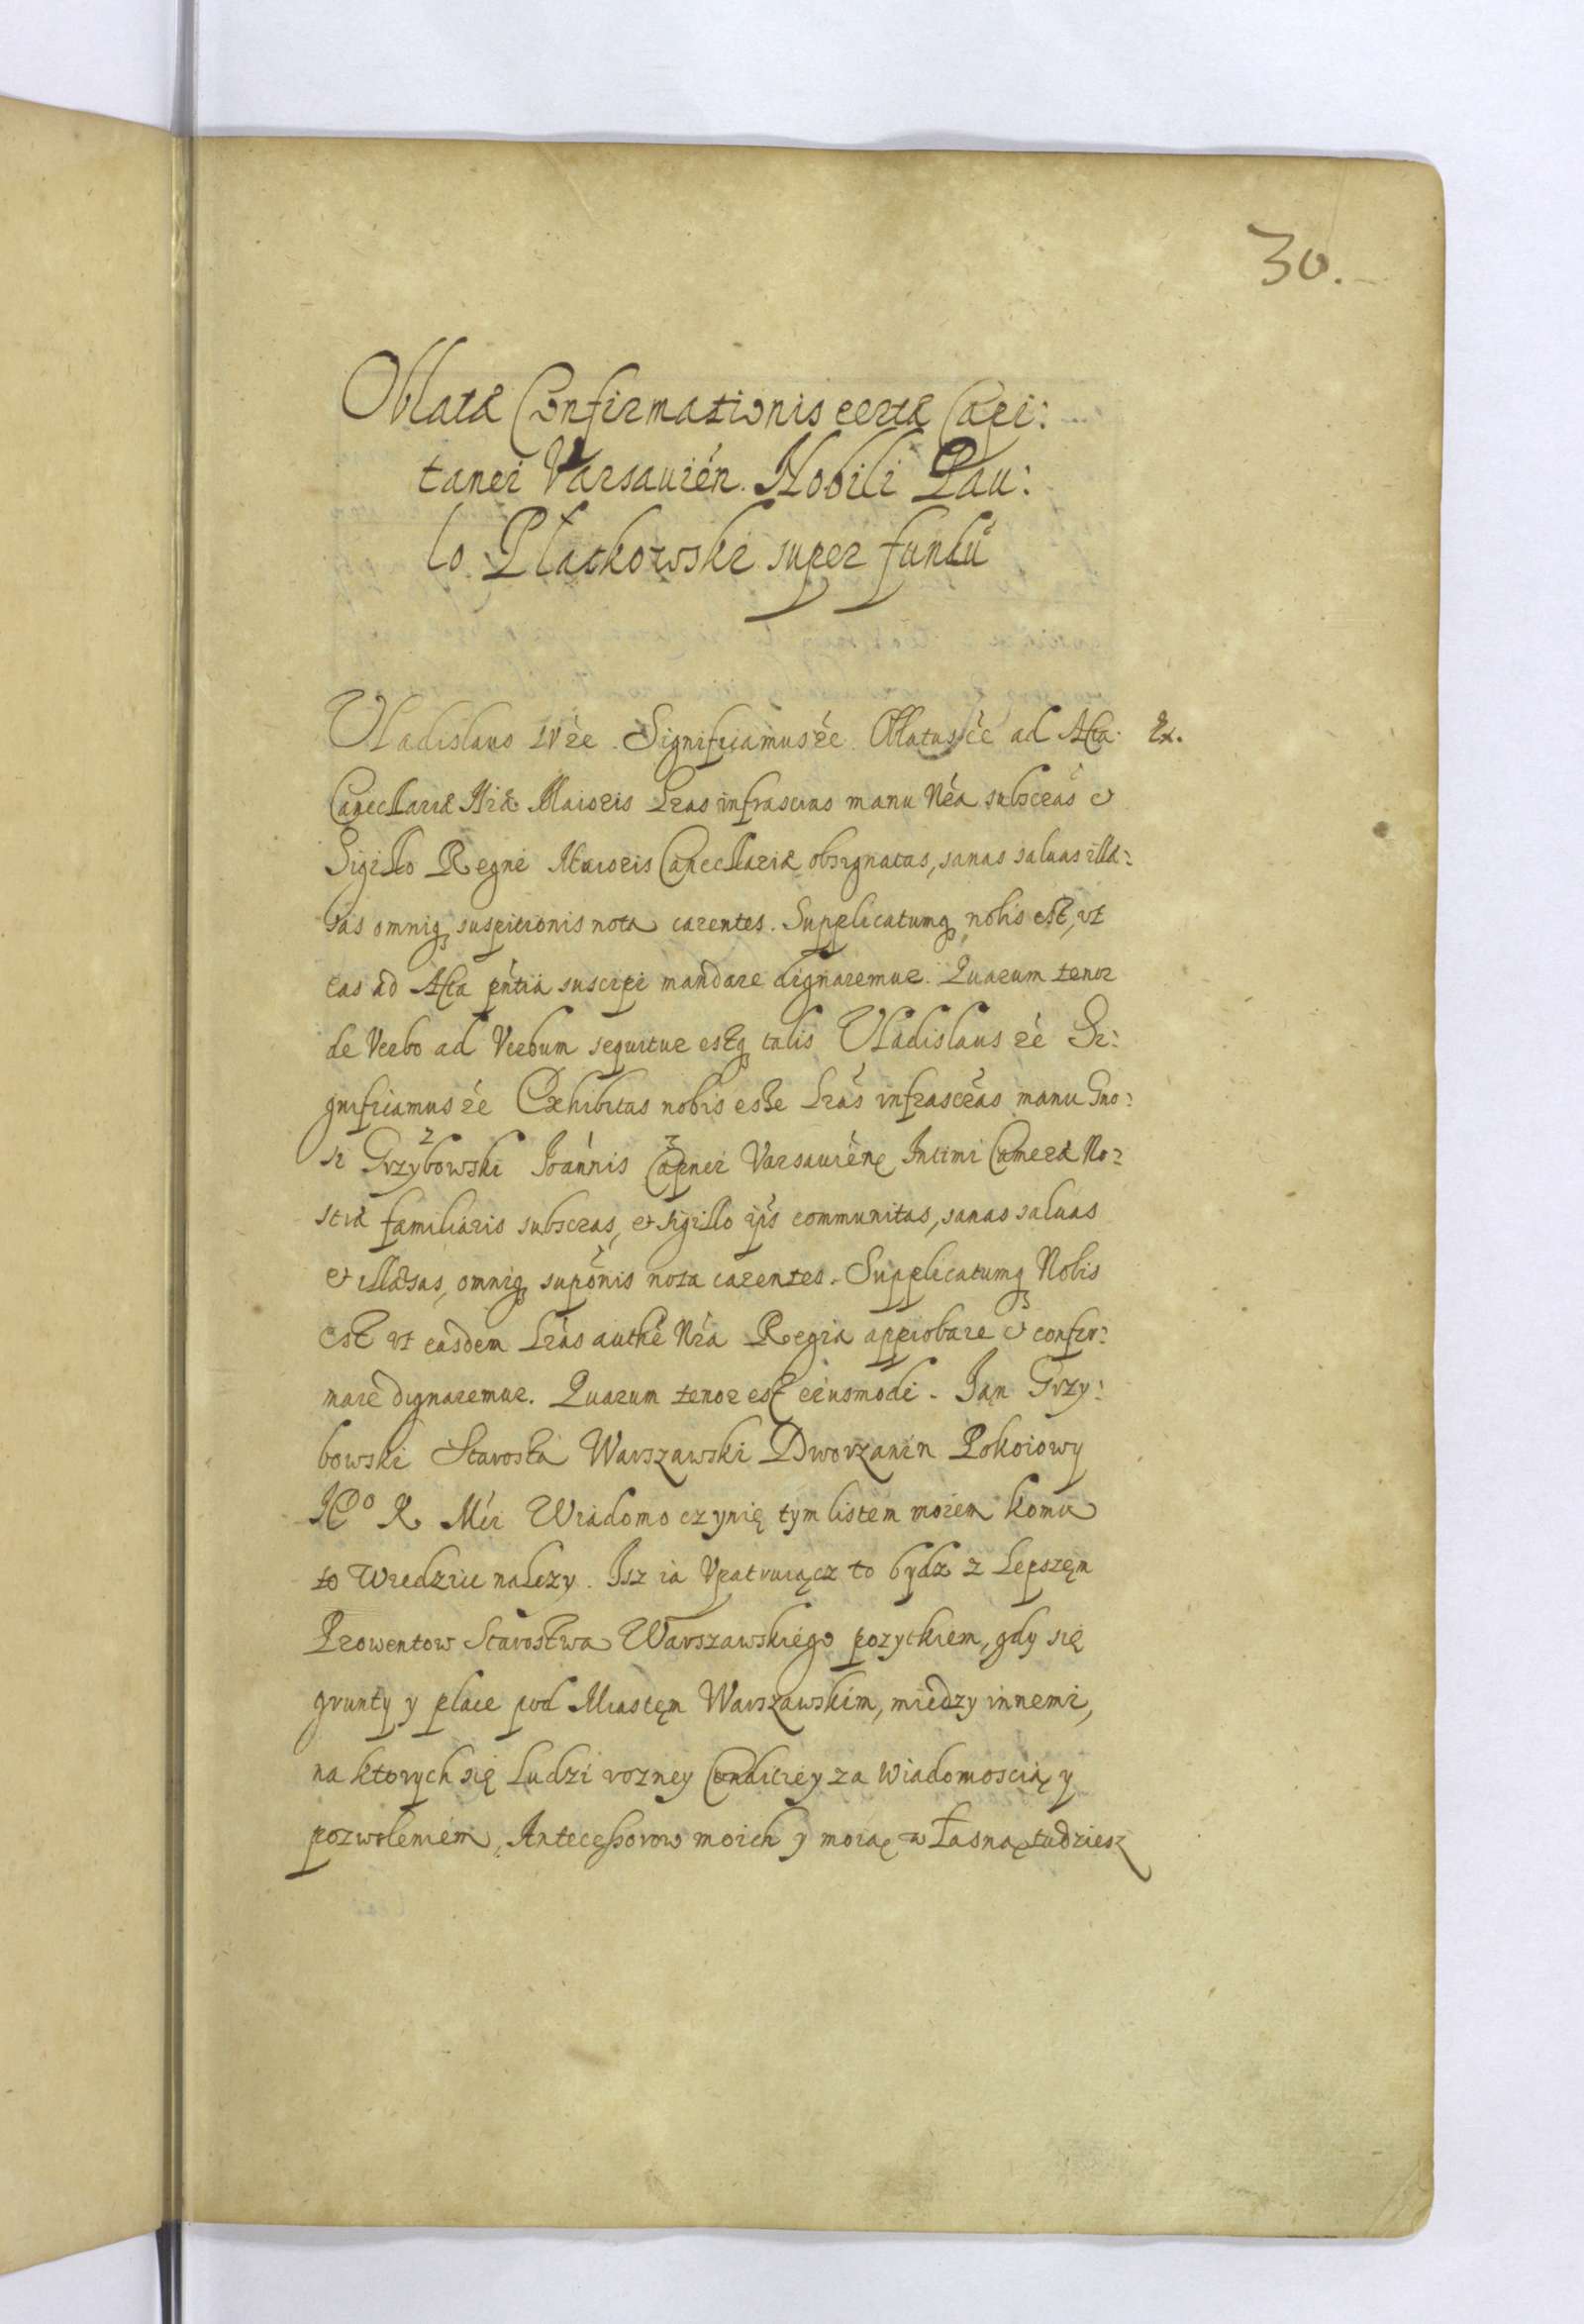 30.
Oblatæ Confirmationis certæ Capi:
tanei Varsauień. Nobili Pau:
lo Płatkowski super fundũ
Vladislaus IV ec. Significamus ec. Oblatas ee ad Acta Ex.
Cancellariæ Nræ Maioris Lras infrascras manu Nra subscras et
Sigillo Regni Maioris Cancellariæ obsignatas, sanas saluas illæ:
sas omniq suspitionis nota carentes. Supplicatumq nobis est, vt
eas ad Acta pntia suscipi mandare dignaremur. Quarum tenor
de Verbo ad Verbum sequitur estq talis Vladislaus ec Si:
gnificamus ec Exhibitas nobis esse Lras infrascras manu Gno:
si Grzybowski Joannis Capnei Varsauien Intimi Cameræ No:
stræ familiaris subscras, et sigillo ips communitas, sanas saluas
et illæsas, omniq suponis nota carentes. Supplicatumq Nobis
est vt easdem Lras authe Nra Regia approbare et confir:
mare dignaremur. Quarum tenor est eiusmodi. Jan Grzy:
bowski Starosta Warszawski Dworzanin Pokoiowy
JEo K Mci Wiadomo czynię tym listem moiem komu
to wiedziec nalezy. Isz ia Vpatruiącz to bydz z Lepszęm
Prowentow Starostwa Warszawskiego pozytkiem, gdy się
grunty y place pod Miastęm Warszawskim, miedzy innemi,
na ktorych się Ludzi rozney Conditiey za Wiadomoscią y
pozwoleniem, Antecessorow moich y moią własną tudziesz